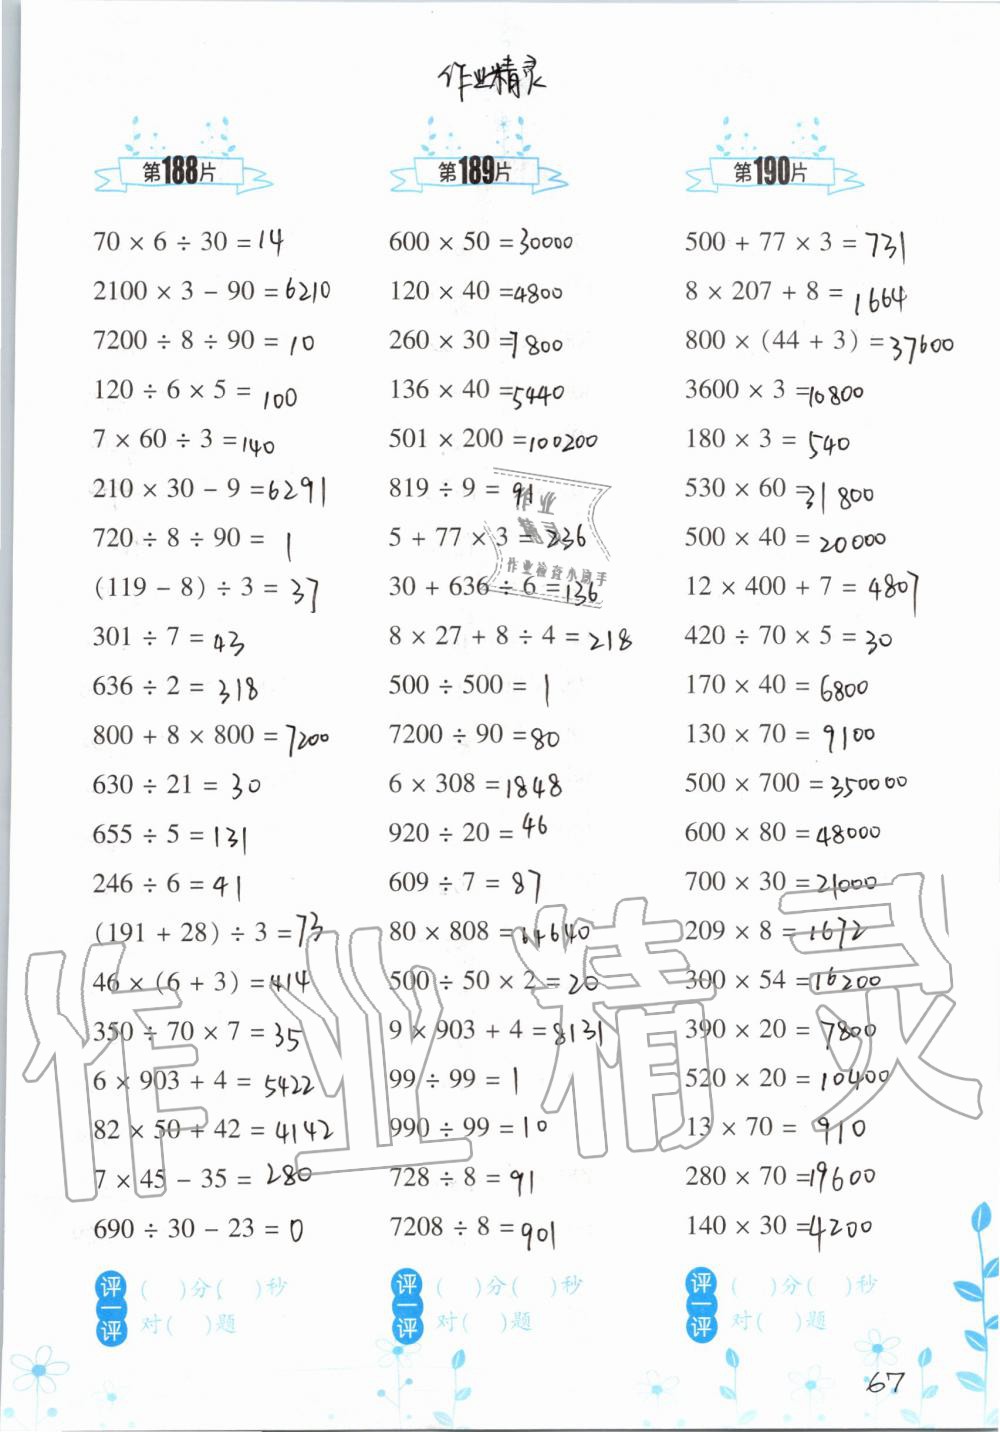 作业精灵
第188片
70 × 6 ÷ 30 = 14
2100 × 3 − 90 = 6210
7200 ÷ 8 ÷ 90 = 10
120 ÷ 6 × 5 = 100
7 × 60 ÷ 3 = 140
210 × 30 − 9 = 6291
720 ÷ 8 ÷ 90 = 1
(119 − 8) ÷ 3 = 37
301 ÷ 7 = 43
636 ÷ 2 = 318
800 + 8 × 800 = 7200
630 ÷ 21 = 30
655 ÷ 5 = 131
246 ÷ 6 = 41
(191 + 28) ÷ 3 = 73
46 × (6 + 3) = 414
350 ÷ 70 × 7 = 35
6 × 903 + 4 = 5422
82 × 50 + 42 = 4142
7 × 45 − 35 = 280
690 ÷ 30 − 23 = 0
评一评
( )分( )秒
对( )题
第189片
600 × 50 = 30000
120 × 40 = 4800
260 × 30 = 7800
136 × 40 = 5440
501 × 200 = 100200
819 ÷ 9 = 91
5 + 77 × 3 = 236
30 + 636 ÷ 6 = 136
8 × 27 + 8 ÷ 4 = 218
500 ÷ 500 = 1
7200 ÷ 90 = 80
6 × 308 = 1848
920 ÷ 20 = 46
609 ÷ 7 = 87
80 × 808 = 64640
500 ÷ 50 × 2 = 20
9 × 903 + 4 = 8131
99 ÷ 99 = 1
990 ÷ 99 = 10
728 ÷ 8 = 91
7208 ÷ 8 = 901
评一评
( )分( )秒
对( )题
第190片
500 + 77 × 3 = 731
8 × 207 + 8 = 1664
800 × (44 + 3) = 37600
3600 × 3 = 10800
180 × 3 = 540
530 × 60 = 31800
500 × 40 = 20000
12 × 400 + 7 = 4807
420 ÷ 70 × 5 = 30
170 × 40 = 6800
130 × 70 = 9100
500 × 700 = 350000
600 × 80 = 48000
700 × 30 = 21000
209 × 8 = 1672
300 × 54 = 16200
390 × 20 = 7800
520 × 20 = 10400
13 × 70 = 910
280 × 70 = 19600
140 × 30 = 4200
评一评
( )分( )秒
对( )题
作业
精灵
作业检查小助手
作业精灵
67